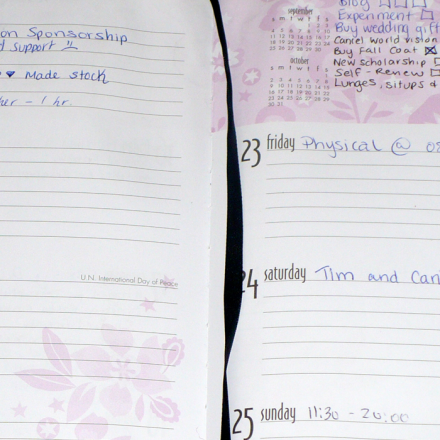 on Sponsorship
d support
Made stock
her - 1 hr.
U.N. International Day of Peace
september
s m t w t f s
october
s m t w t f s
Blog
Experiment
Buy wedding gift
Cancel world vision
Buy Fall Coat
New scholarship
Self-Renew
Lunges, situps &
23 friday Physical @ 08
24 saturday Tim and Can
25 sunday 11:30 - 20:00